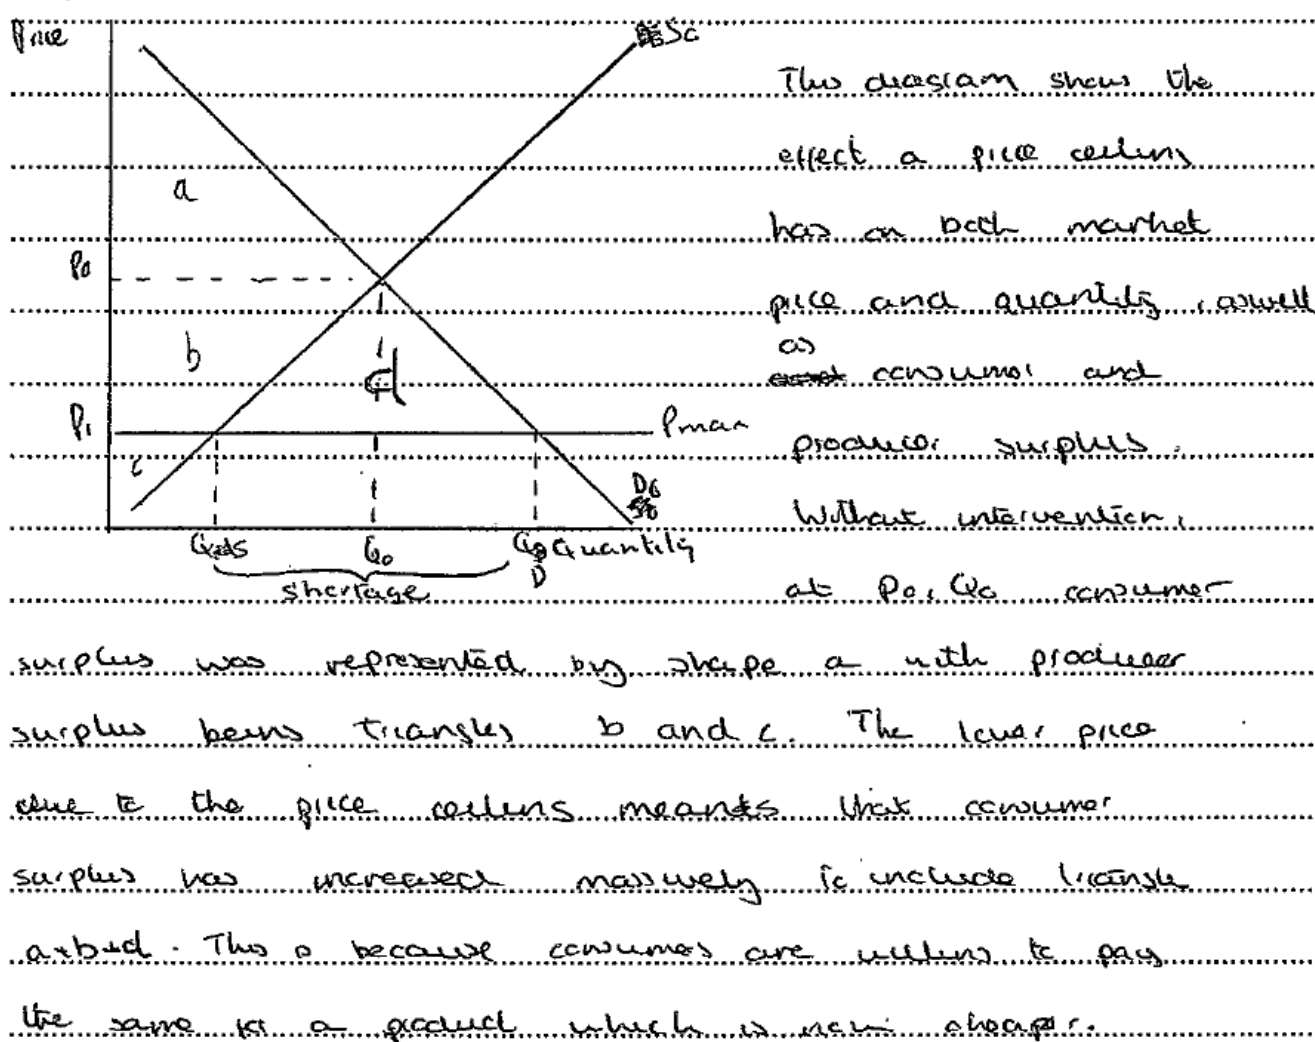 Price
S0
This diagram shows the
effect a price ceiling
a
has on both market
P0
price and quantity, aswell
b
as
consumer and
d
P1
Pmax
producer surplus.
c
D0
Without intervention,
QS Q0 QD Quantity
shortage
at P0, Q0 consumer
surplus was represented by shape a with producer
surplus being triangles b and c. The lower price
due to the price ceiling means that consumer
surplus has increased massively to include triangle
a+b+d. This is because consumers are willing to pay
the same for a product which is now cheaper.